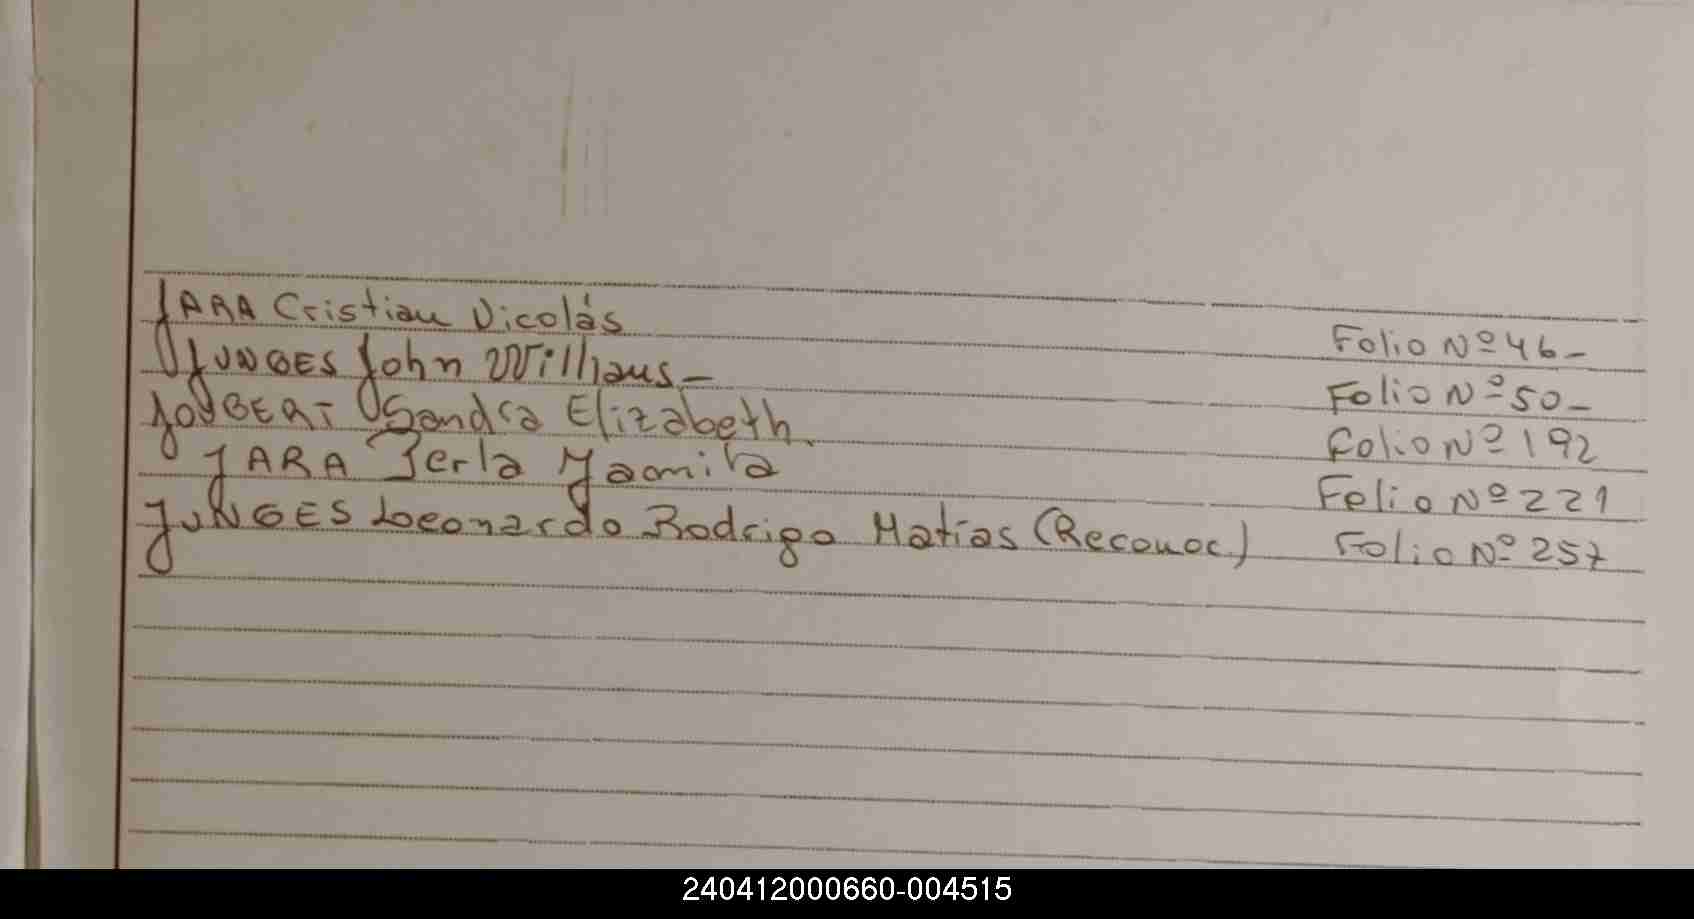 JARA Cristian Nicolás Folio Nº 46-
JUNGES John Willians- Folio Nº 50-
JOUBERT Sandra Elizabeth. Folio Nº 192
JARA Perla Yamila Folio Nº 221
JUNGES Leonardo Rodrigo Matías (Reconoc) Folio Nº 257
240412000660-004515